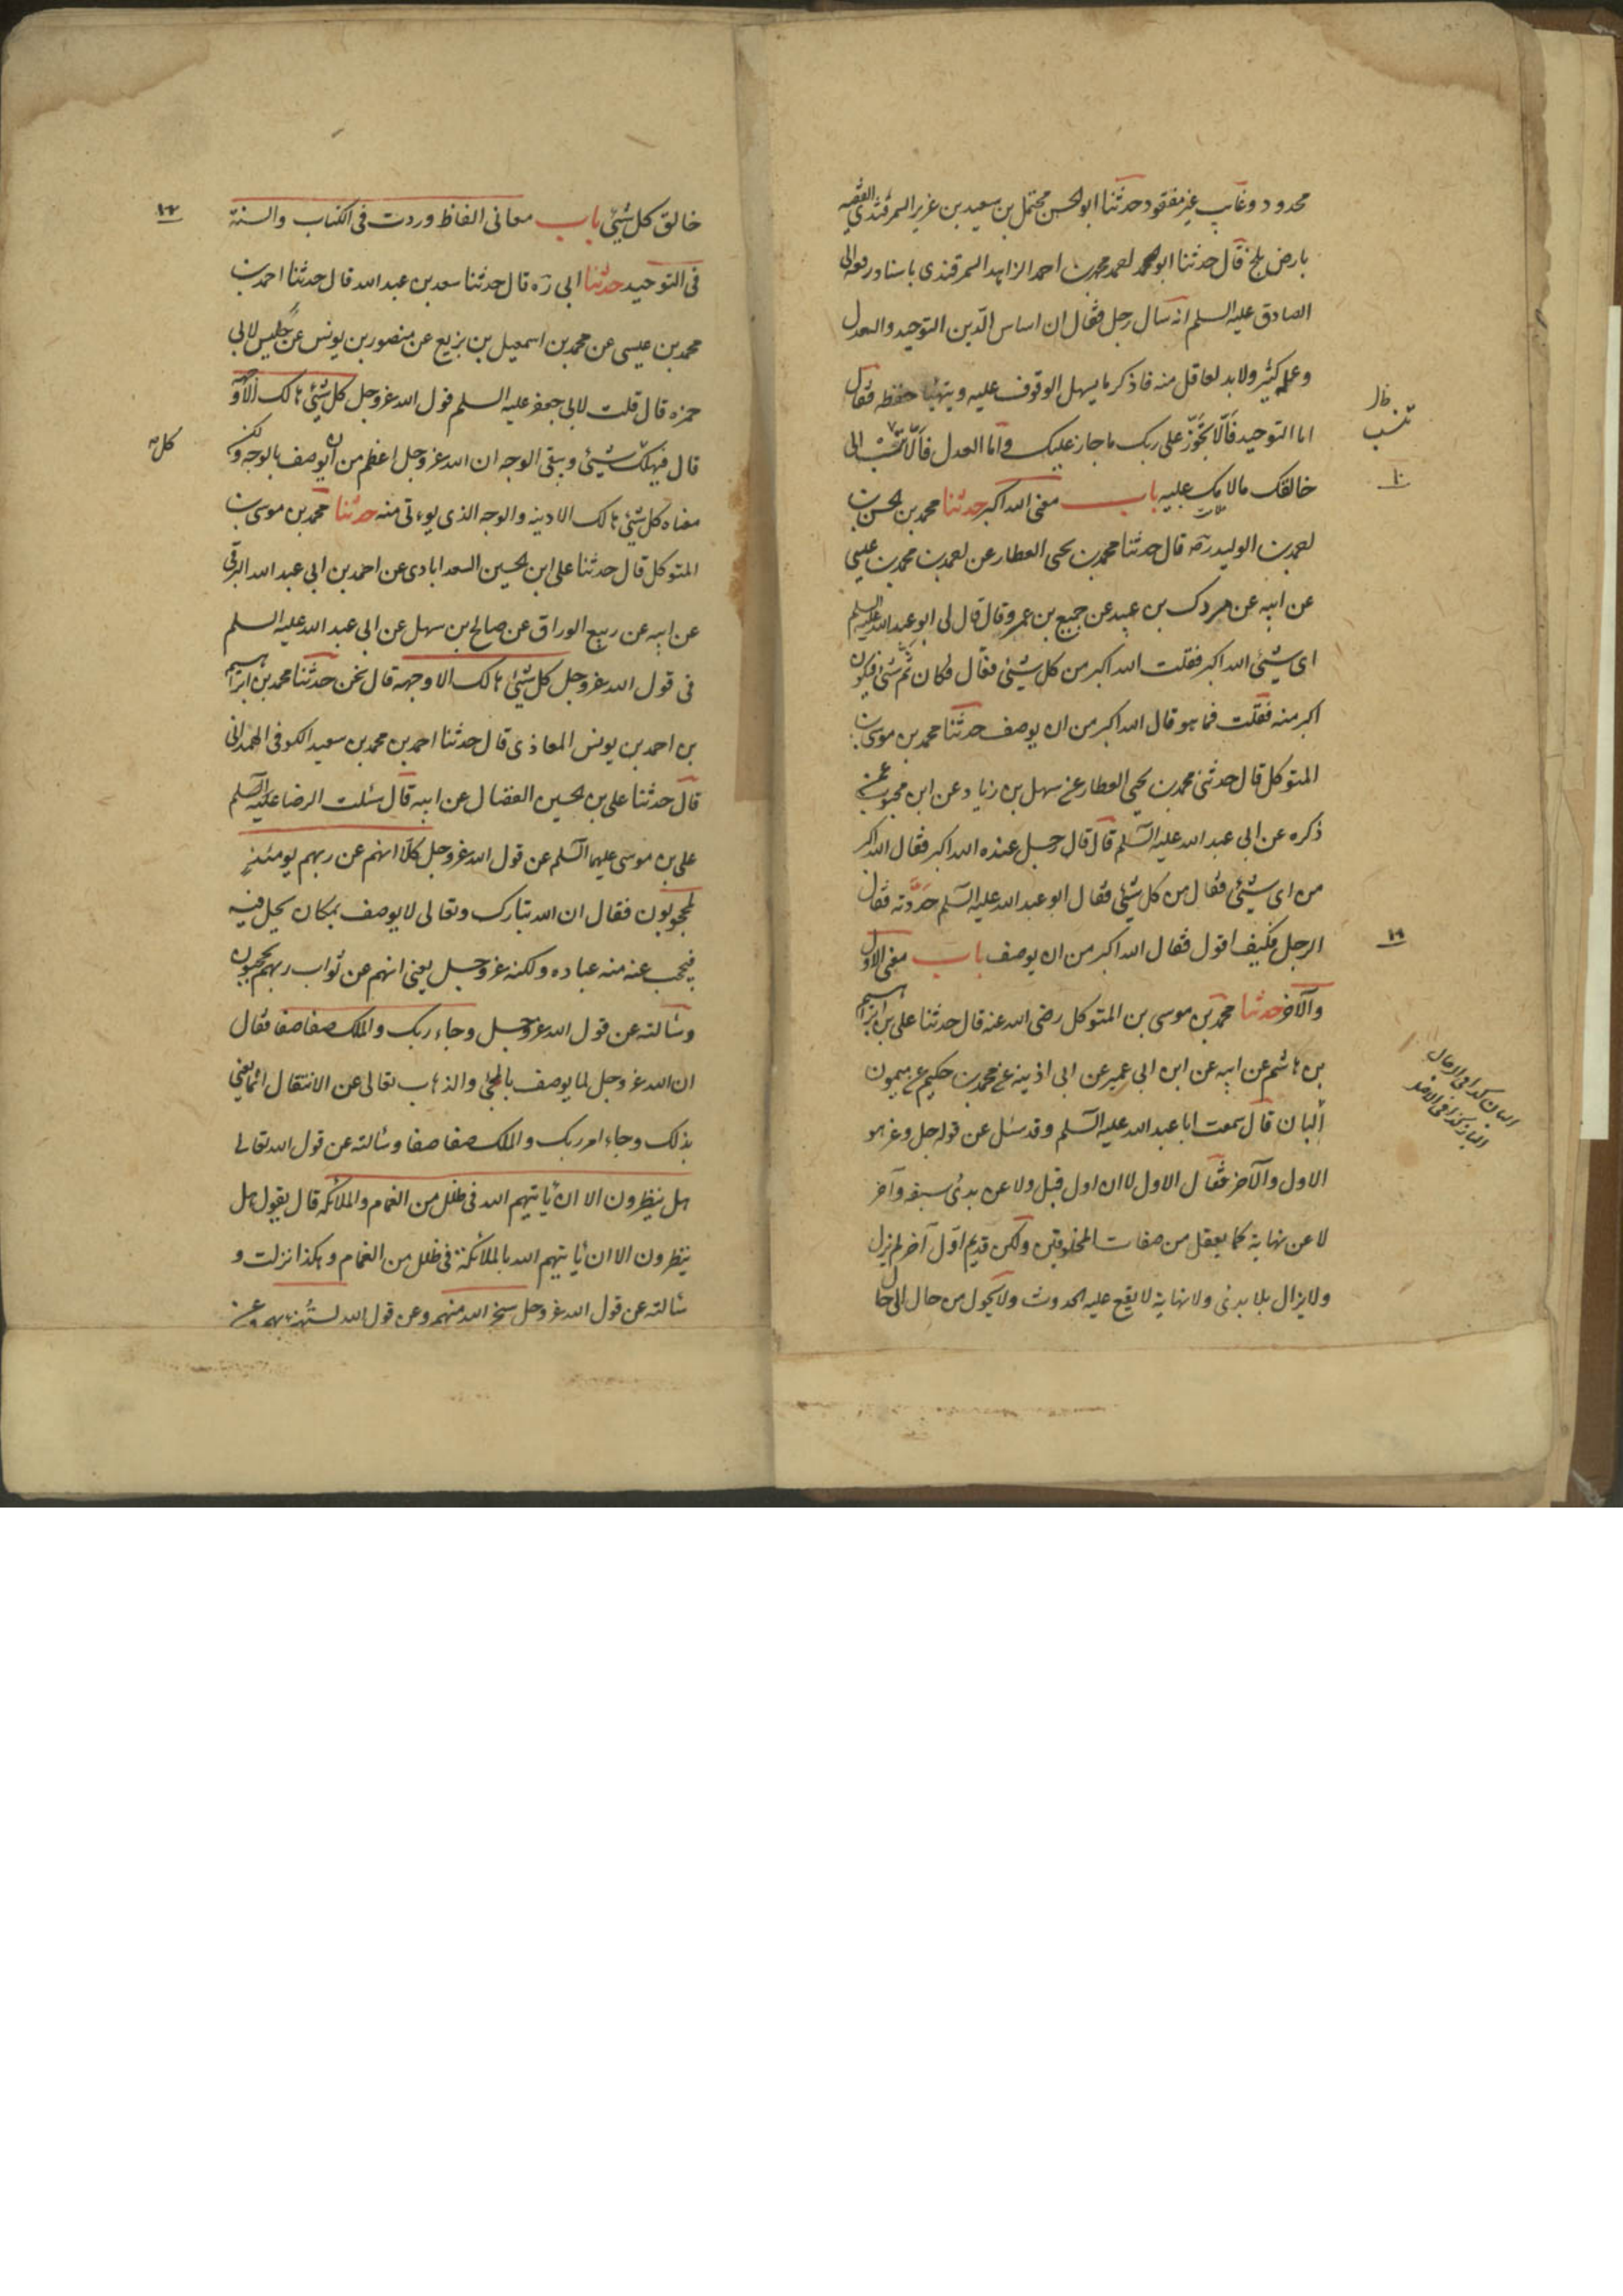 محدود وغايب غير مفقود حدثنا ابو الحسن محتمل بن سعيد بن عزيز السمرقندى الفقيه
بارض بلخ قال حدثنا ابو محمد احمد بن محمد بن احمد الزاهد السمرقندى باسناد رفعه الى
الصادق عليه السلم انه سال رجل فقال ان اساس الدين التوحيد والعدل
وعلمه كثير ولا بد لعاقل منه فاذكر ما يسهل الوقوف عليه ويتهيا حفظه فقال
اما التوحيد فالّا تجوّز على ربك ما جاز عليك واما العدل فالّا تنسب الى
خالقك ما لامك عليه باب معنى الله اكبر حدثنا محمد بن الحسن بن
احمد بن الوليد ره قال حدثنا محمد بن يحيى العطار عن احمد بن محمد بن عيسى
عن ابيه عن مردك بن عبيد عن جميع بن عمرو قال قال لى ابو عبد الله عليه السلم
اى شيئ الله اكبر فقلت الله اكبر من كل شيئ فقال فكان ثَمّ شيئ فيكون
اكبر منه فقلت فما هو قال الله اكبر من ان يوصف حدثنا محمد بن موسى بن
المتوكل قال حدثنى محمد بن يحيى العطار عن سهل بن زياد عن ابن محبوب عمن
ذكره عن ابى عبد الله عليه السلم قال قال رجل عنده الله اكبر فقال الله اكبر
من اى شيئ فقال من كل شيئ فقال ابو عبد الله عليه السلم حَدَّدته فقال
الرجل فكيف اقول فقال الله اكبر من ان يوصف باب معنى الاول
والآخر حدثنا محمد بن موسى بن المتوكل رضى الله عنه قال حدثنا على بن ابراهيم
بن هاشم عن ابيه عن ابن ابى عمير عن ابى اذينه عن محمد بن حكيم عن ميمون
البان قال سمعت ابا عبد الله عليه السلم وقد سئل عن قوله جل وعز هو
الاول والآخر فقال الاول لا ان اول قبل ولا عن بدئ سبقه وآخر
لا عن نهاية كما يعقل من صفات المخلوقين ولكن قديم اول آخر لم يزل
ولا يزال بلا بدئ ولا نهاية لا يقع عليه الحدوث ولا يحول من حال الى حال
تنسب
١٠
١١
خالق كل شيئ باب معانى الفاظ وردت فى الكتاب والسنة
فى التوحيد حدثنا ابى ره قال حدثنا سعد بن عبد الله قال حدثنا احمد بن
محمد بن عيسى عن محمد بن اسمعيل بن بزيع عن منصور بن يونس عن جليس لابى
حمزه قال قلت لابى جعفر عليه السلم قول الله عز وجل كل شيئ هالك الا وجهه
قال فيهلك كل شيئ ويبقى الوجه ان الله عز وجل اعظم من ان يوصف بالوجه ولكن
معناه كل شيئ هالك الا دينه والوجه الذى يوءتى منه حدثنا محمد بن موسى بن
المتوكل قال حدثنا على ابن الحسين السعدابادى عن احمد بن ابى عبد الله البرقى
عن ابيه عن ربيع الوراق عن صالح بن سهل عن ابى عبد الله عليه السلم
فى قول الله عز وجل كل شيئ هالك الا وجهه قال نحن حدثنا محمد بن ابراهيم
بن احمد بن يونس المعاذى قال حدثنا احمد بن محمد بن سعيد الكوفى الهمدانى
قال حدثنا على بن الحسين الفضال عن ابيه قال سئلت الرضا عليه السلم
على بن موسى عليهما السلم عن قول الله عز وجل كلّا انهم عن ربهم يومئذٍ
لمحجوبون فقال ان الله تبارك وتعالى لا يوصف بمكان يحل فيه
فيحجب عنه منه عباده ولكنه عز وجل يعنى انهم عن ثواب ربهم محجوبون
وسالته عن قول الله عز وجل وجاء ربك والملك صفا صفا فقال
ان الله عز وجل لما يوصف بالمجئ والذهاب تعالى عن الانتقال انما يعنى
بذلك وجاء امر ربك والملك صفا صفا وسالته عن قول الله تعالى
هل ينظرون الا ان يأتيهم الله فى ظلل من الغمام والملائكه قال يقول هل
ينظرون الا ان يأتيهم الله بالملائكة فى ظلل من الغمام وهكذا نزلت و
سالته عن قول الله عز وجل سخر الله منهم وعن قول الله يستهزئ بهم وعن
١٢
كل